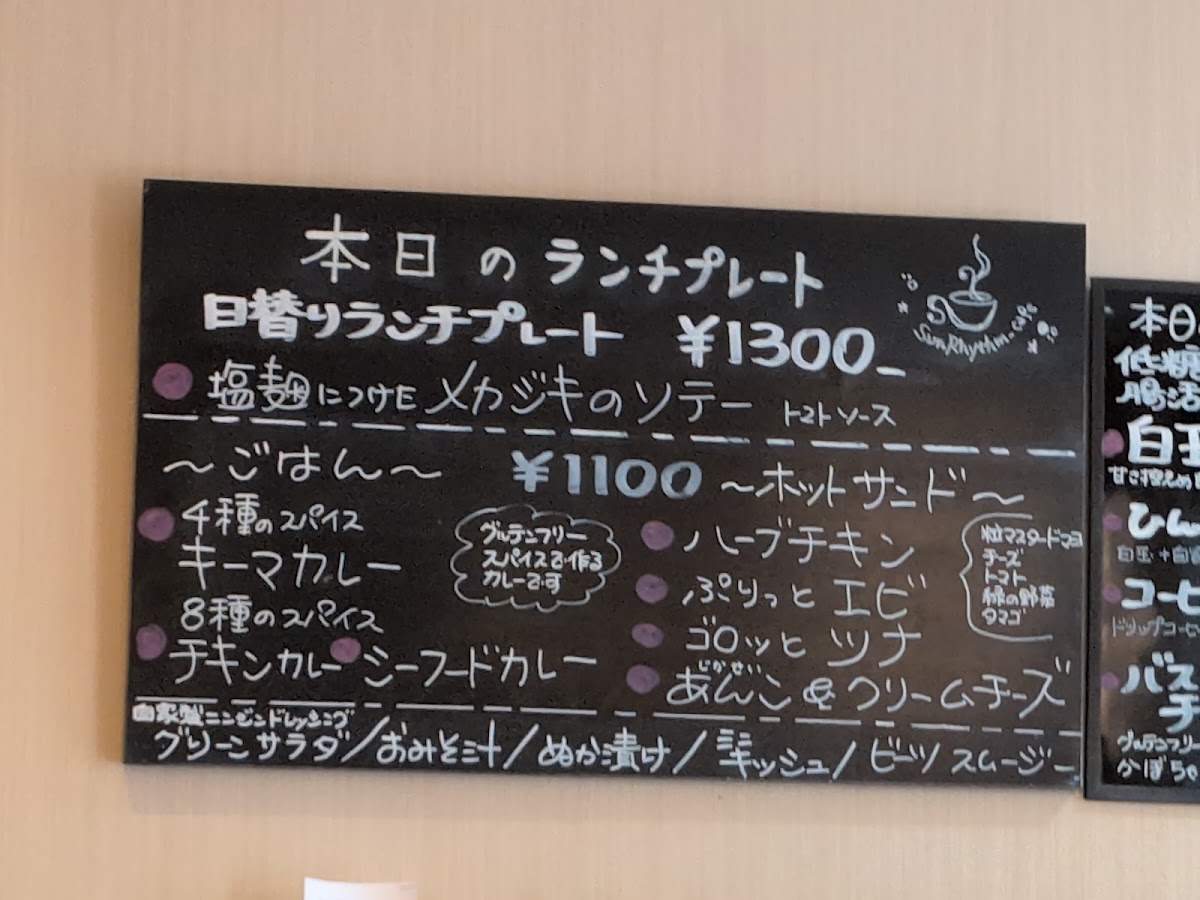 本日のランチプレート
SunRhythm-cafe
日替りランチプレート ¥1300
塩麹につけた メカジキのソテー トマトソース
¥1100
〜ごはん〜
4種のスパイス
キーマカレー
グルテンフリー
スパイスで作る
カレーです
8種のスパイス
チキンカレー シーフードカレー
〜ホットサンド〜
ハーブチキン
ぷりっと エビ
ゴロッと ツナ
じかせい
あんこ & クリームチーズ
粒マスタードマヨ
チーズ
トマト
緑の野菜
タマゴ
自家製ニンジンドレッシング
グリーンサラダ/おみそ汁/ぬか漬け/ミニキッシュ/ビーツスムージー
本日
低糖
腸活
白玉
甘さ控えめ
ひん
白玉+白
コーヒ
ドリップコーヒ
バス
チ
グルテンフリー
かぼちゃ